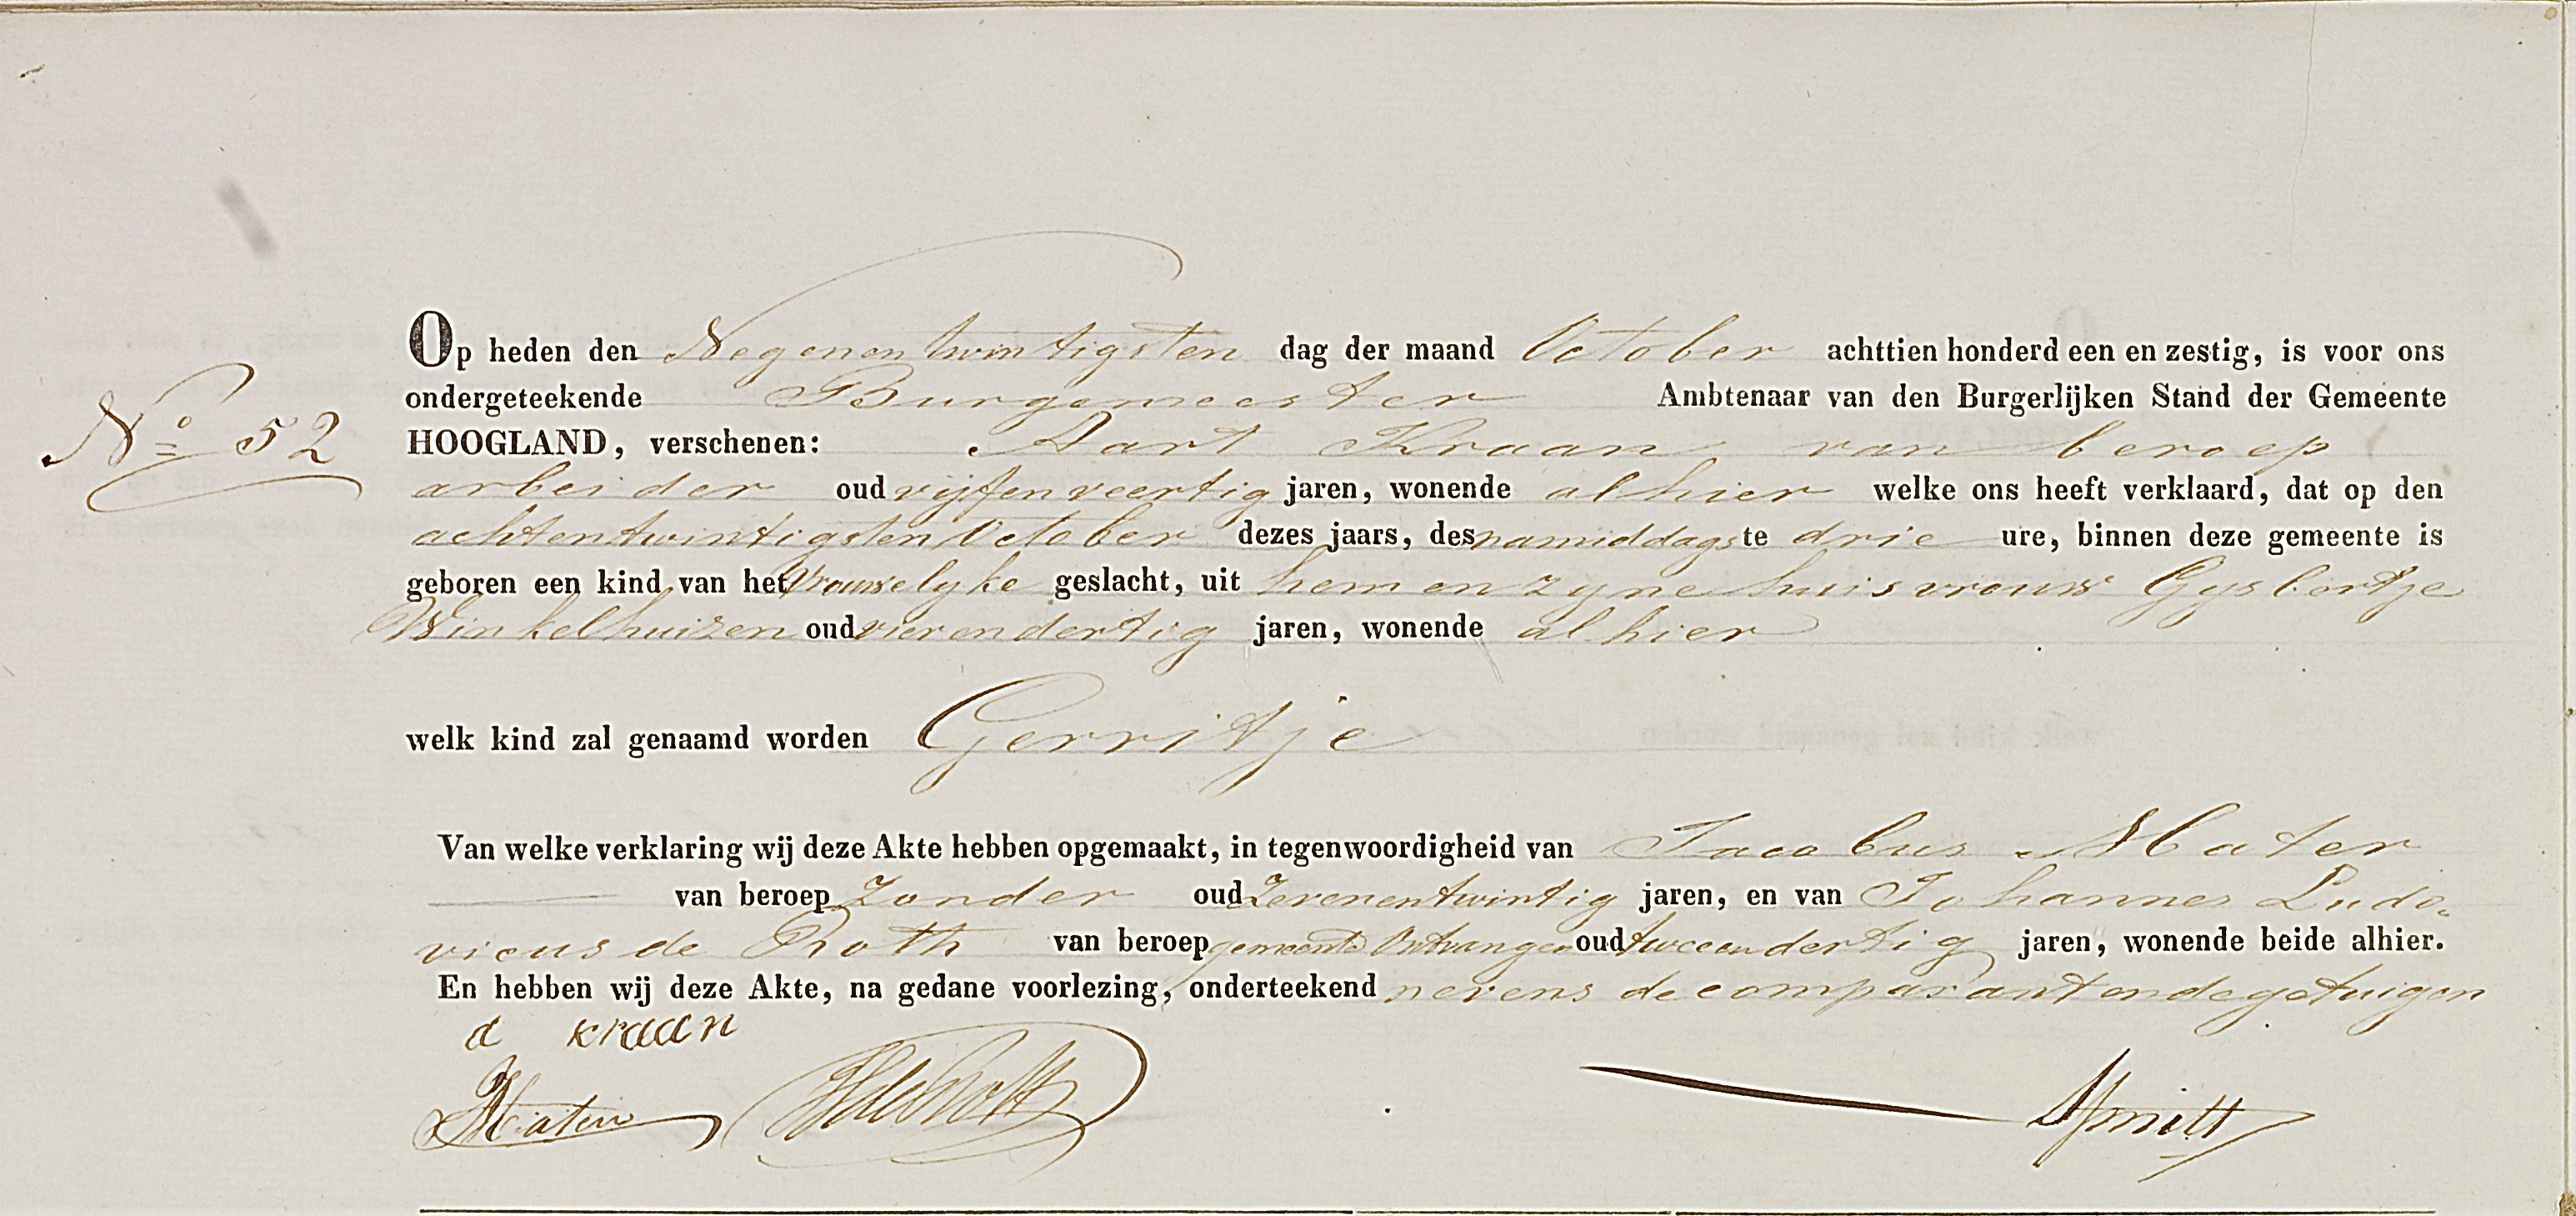 Op heden den Negenentwintigsten dag der maand October achttien honderd een en zestig, is voor ons
ondergeteekende Burgemeester Ambtenaar van den Burgerlijken Stand der Gemeente
No 52
HOOGLAND, verschenen: Aart Kraan van beroep
arbeider oud vijfenveertig jaren, wonende alhier welke ons heeft verklaard, dat op den
achtentwintigsten October dezes jaars, des namiddags te drie ure, binnen deze gemeente is
geboren een kind van het vrouwelyke geslacht, uit hem en zyne huisvrouw Gysbertje
Winkelhuizen oud vierendertig jaren, wonende alhier
welk kind zal genaamd worden Gerritje
Van welke verklaring wij deze Akte hebben opgemaakt, in tegenwoordigheid van Jacobus Mater
van beroep Zonder oud Zevenentwintig jaren, en van Johannes Ludo-
vicus de Roth van beroep gemeente Ontvanger oud tweeendertig jaren, wonende beide alhier.
En hebben wij deze Akte, na gedane voorlezing, onderteekend nevens de comparant en de getuigen
a kraan
JMater JLdeRoth Smitt